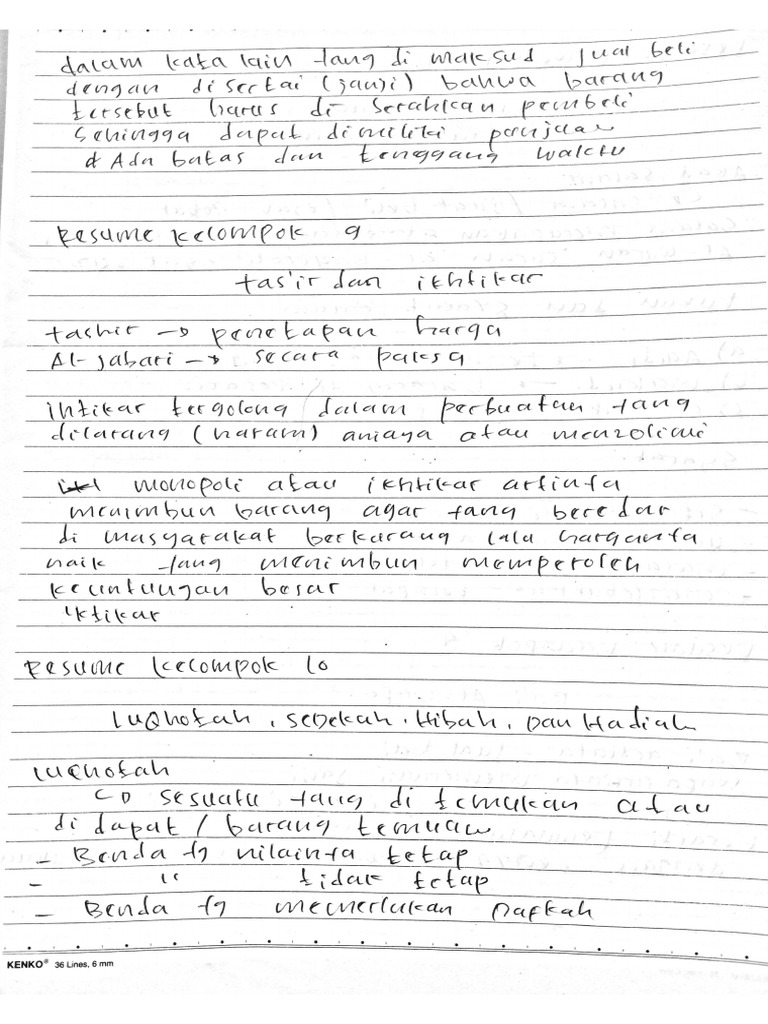 dalam kata lain yang di maksud jual beli
dengan disertai (janji) bahwa barang
tersebut harus di serahkan pembeli
sehingga dapat dimiliki penjual
& Ada batas dan tenggang waktu
Resume kelompok 9
tas'ir dan ikhtikar
tashir → penetapan harga
Al-jabari → secara paksa
ihtikar tergolong dalam perbuatan yang
dilarang (haram) aniaya atau menzolimi
monopoli atau ikhtikar artinya
menimbun barang agar yang beredar
di masyarakat berkurang lalu harganya
naik yang menimbun memperoleh
keuntungan besar
'ktikar
Resume kelompok 10
luQhotah, SEDEKAH, Hibah, Dan Hadiah
luQhotah
↳ sesuatu yang di temukan atau
di dapat / barang temuan
- Benda yg nilainya tetap
- " tidak tetap
- Benda yg memerlukan nafkah
KENKO® 36 Lines, 6 mm